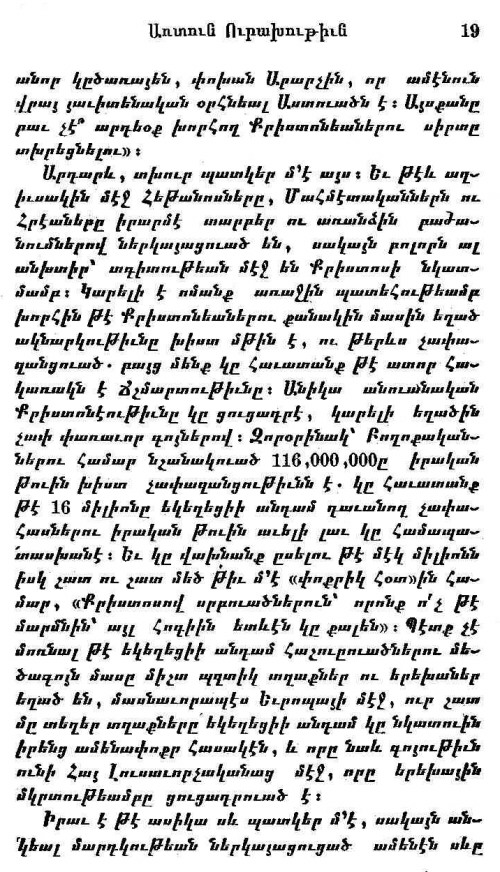 Առտուն Ուրախութիւն 19
անոր կըծառայեն, փոխան Արարչին, որ ամէնուն
վրայ յաւիտենական օրհնեալ Աստուածն է։ Այսքանը
բաւ չէ՞ արդեօք խորհող Քրիստոնեաներու սիրտը
տխրեցնելու»։
Արդարև, տխուր պատկեր մ՚է այս։ Եւ թէև աղ-
իւսակին մէջ Հեթանոսները, Մահմէտականներն ու
Հրէաները իրարմէ տարբեր ու առանձին բաժա-
նումներով ներկայացուած են, սակայն բոլորն ալ
անխտիր՝ տգիտութեան մէջ են Քրիստոսի նկատ-
մամբ։ Կարելի է ոմանք առաջին պատեհութեամբ
խորհին թէ Քրիստոնեաներու քանակին մասին եղած
ակնարկութիւնը խիստ մթին է, ու թերևս չափա-
զանցուած. բայց մենք կը հաւատանք թէ ատոր հա-
կառակն է ճշմարտութիւնը։ Անիկա անուանական
Քրիստոնէութիւնը կը ցուցադրէ, կարելի եղածին
չափ փառաւոր գոյներով։ Զորօրինակ՝ Բողոքական-
ներու համար նշանակուած 116,000,000ը իրական
թուին խիստ չափազանցութիւնն է. կը հաւատանք
թէ 16 միլիոնը եկեղեցիի անդամ դաւանող չափա-
հասներու իրական թուին աւելի լաւ կը համապա-
տասխանէ։ Եւ կը վախնանք ըսելու թէ մէկ միլիոնն
իսկ շատ ու շատ մեծ թիւ մ՚է «փոքրիկ հօտ»ին հա-
մար, «Քրիստոսով սրբուածներուն՝ որոնք ո՛չ թէ
մարմնին՝ այլ հոգիին ետևէն կը քալեն»։ Պէտք չէ
մոռնալ թէ եկեղեցիի անդամ հաշուըուածներու մե-
ծագոյն մասը միշտ պզտիկ տղաքներ ու երեխաներ
եղած են, մասնաւորապէս Եւրոպայի մէջ, ուր շատ
մը տեղեր տղաքները եկեղեցիի անդամ կը նկատուին
իրենց ամենափոքր հասակէն, և որը նաև գոյութիւն
ունի Հայ Լուսաւորչականաց մէջ, որը երեխային
մկրտութեամբը ցուցադրուած է։
Իրաւ է թէ ասիկա սև պատկեր մ՚է, սակայն ան-
կեալ մարդկութեան ներկայացուցած ամենէն սևը